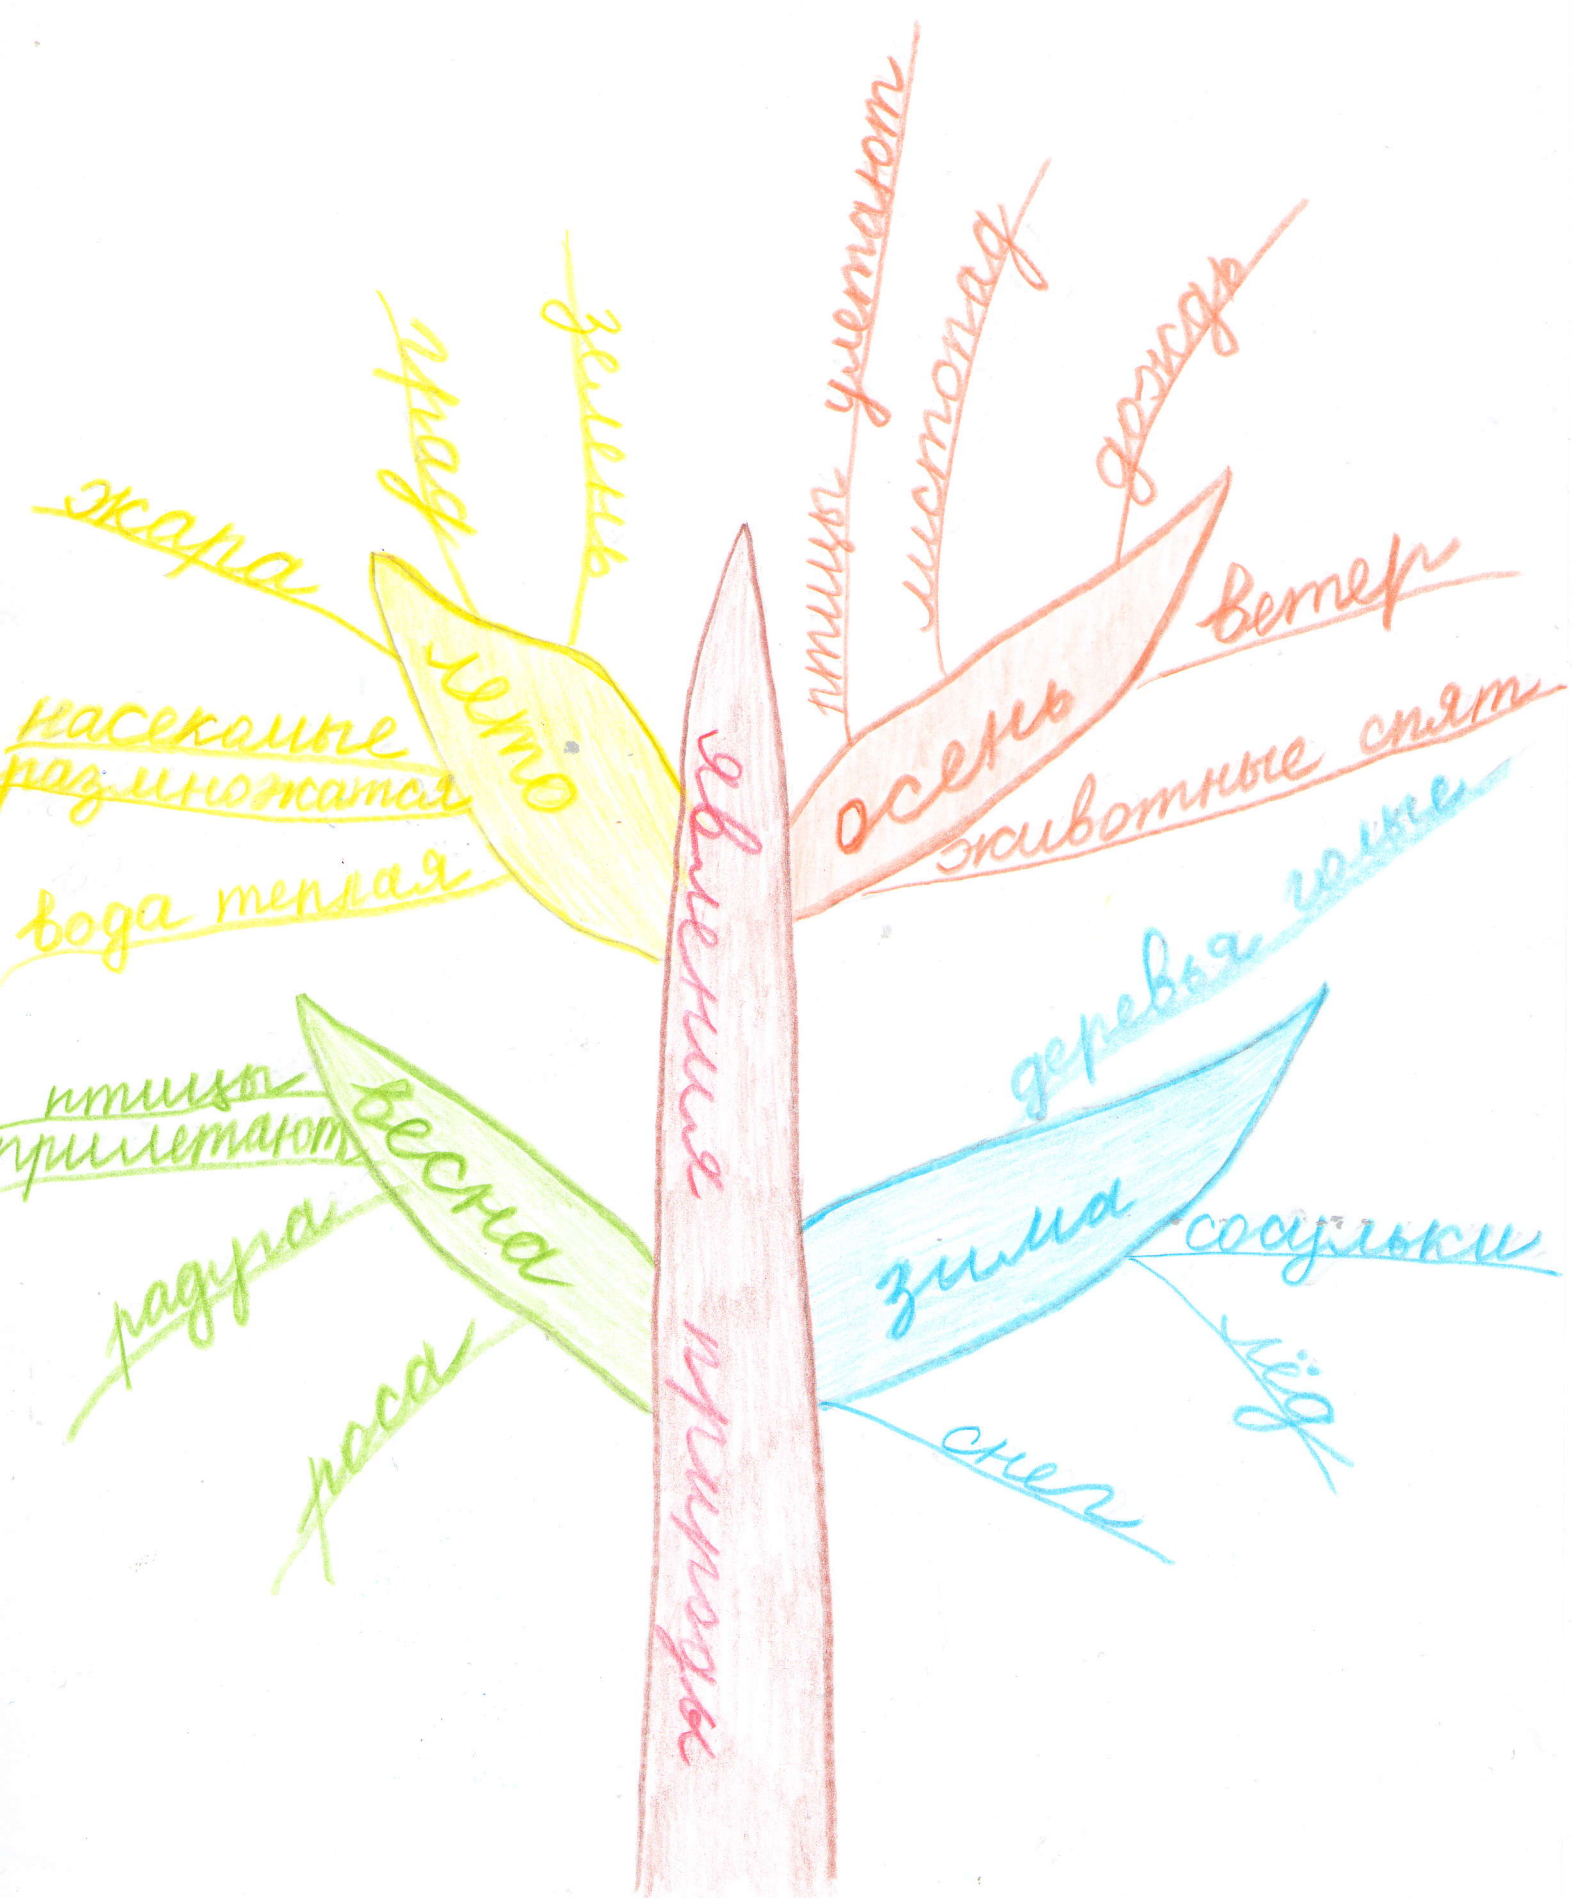 явления природы
лето
жара
град
зелень
насекомые
размножатся
вода теплая
осень
птицы улетают
листопад
дождь
ветер
животные спят
весна
птицы
прилетают
радуга
роса
зима
деревья голые
сосульки
лёд
снег